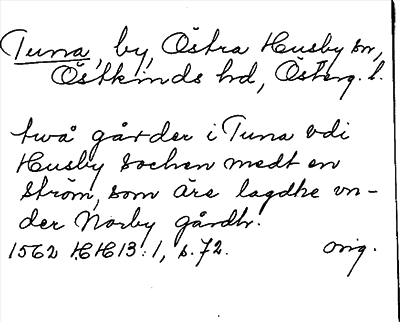 Tuna, by, Östra Husby sn,
Östkinds hd, Österg. l.
två gårder i Tuna vdi
Husby sochen medt en
ström, som äre lagdhe vn-
der Norby gårdh.
1562 HH13:1, s. 72. orig.